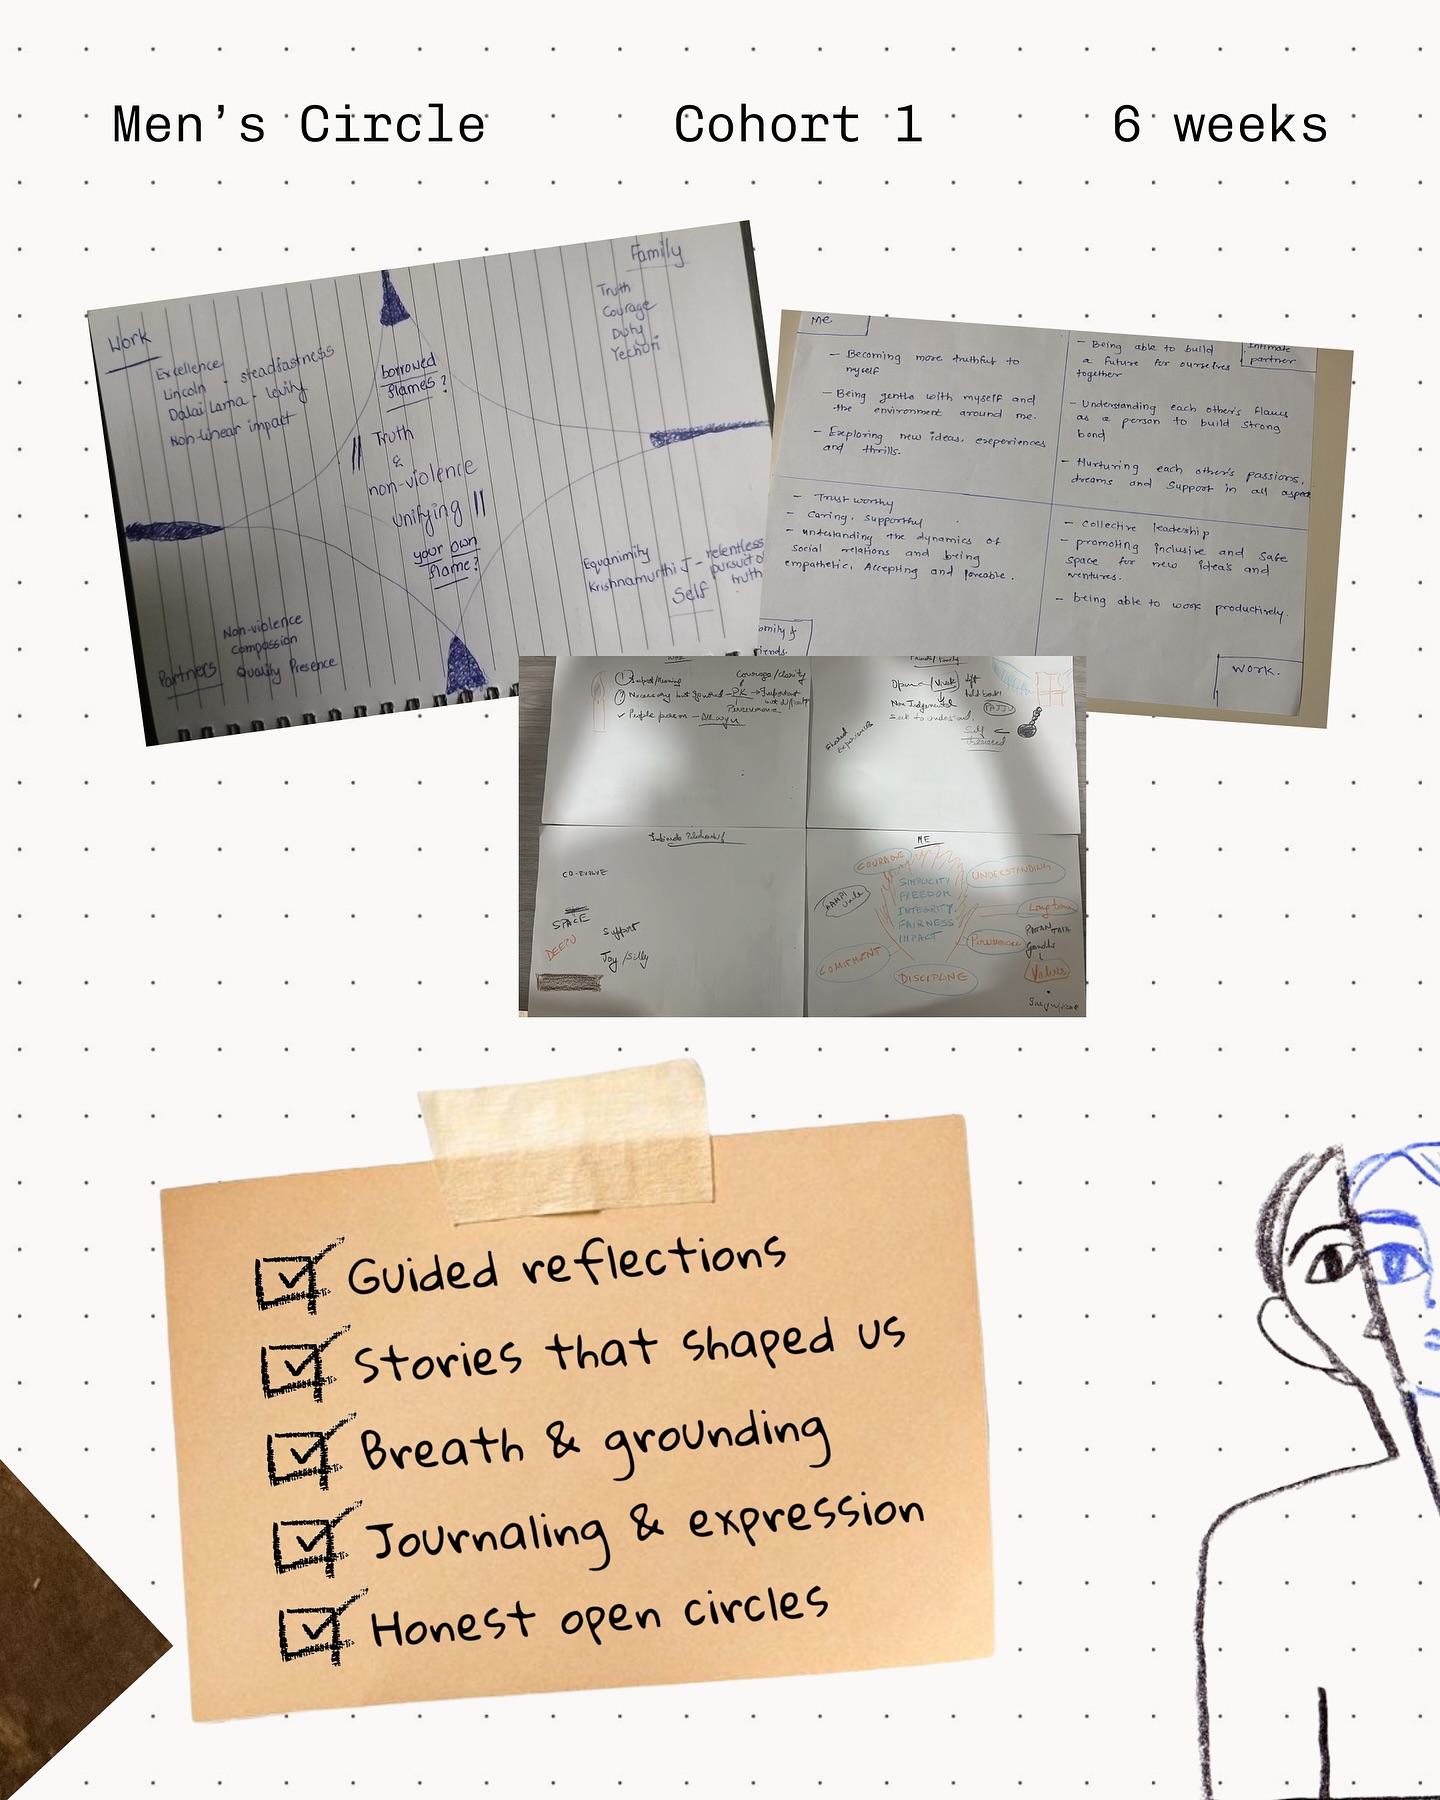 Men's Circle Cohort 1 6 weeks
Work
Excellence
Lincoln - steadfastness
Dalai Lama - levity
Non-linear impact
borrowed
flames?
Truth
&
non-violence
unifying
your own
flame?
Family
Truth
Courage
Duty
Partners
Non-violence
compassion
Quality Presence
Equanimity
Krishnamurthi J - relentless
pursuit of
truth
Self
Me
- Becoming more truthful to
myself
- Being gentle with myself and
the environment around me.
- Exploring new ideas, experiences
and thrills.
Intimate
partner
- Being able to build
a future for ourselves
together
- Understanding each other's flaws
as a person to build strong
bond
- Nurturing each other's passions,
dreams and support in all aspect
- Trust worthy
- Caring, supportful
- understanding the dynamics of
social relations and being
empathetic, Accepting and loveable.
- collective leadership
- promoting inclusive and safe
space for new idea's and
ventures.
- being able to work productively.
work.
Courage/clarity
People person
Non Judgemental
Seek to understand.
Shared
experiences
Self
CO-EVOLVE
SPACE
DEEPU
Support
Joy/silly
ME
COURAGE
UNDERSTANDING
SIMPLICITY
FREEDOM
INTEGRITY
FAIRNESS
IMPACT
Gandhi
Values
COMITMENT
DISCIPLINE
Guided reflections
Stories that shaped us
Breath & grounding
Journaling & expression
Honest open circles